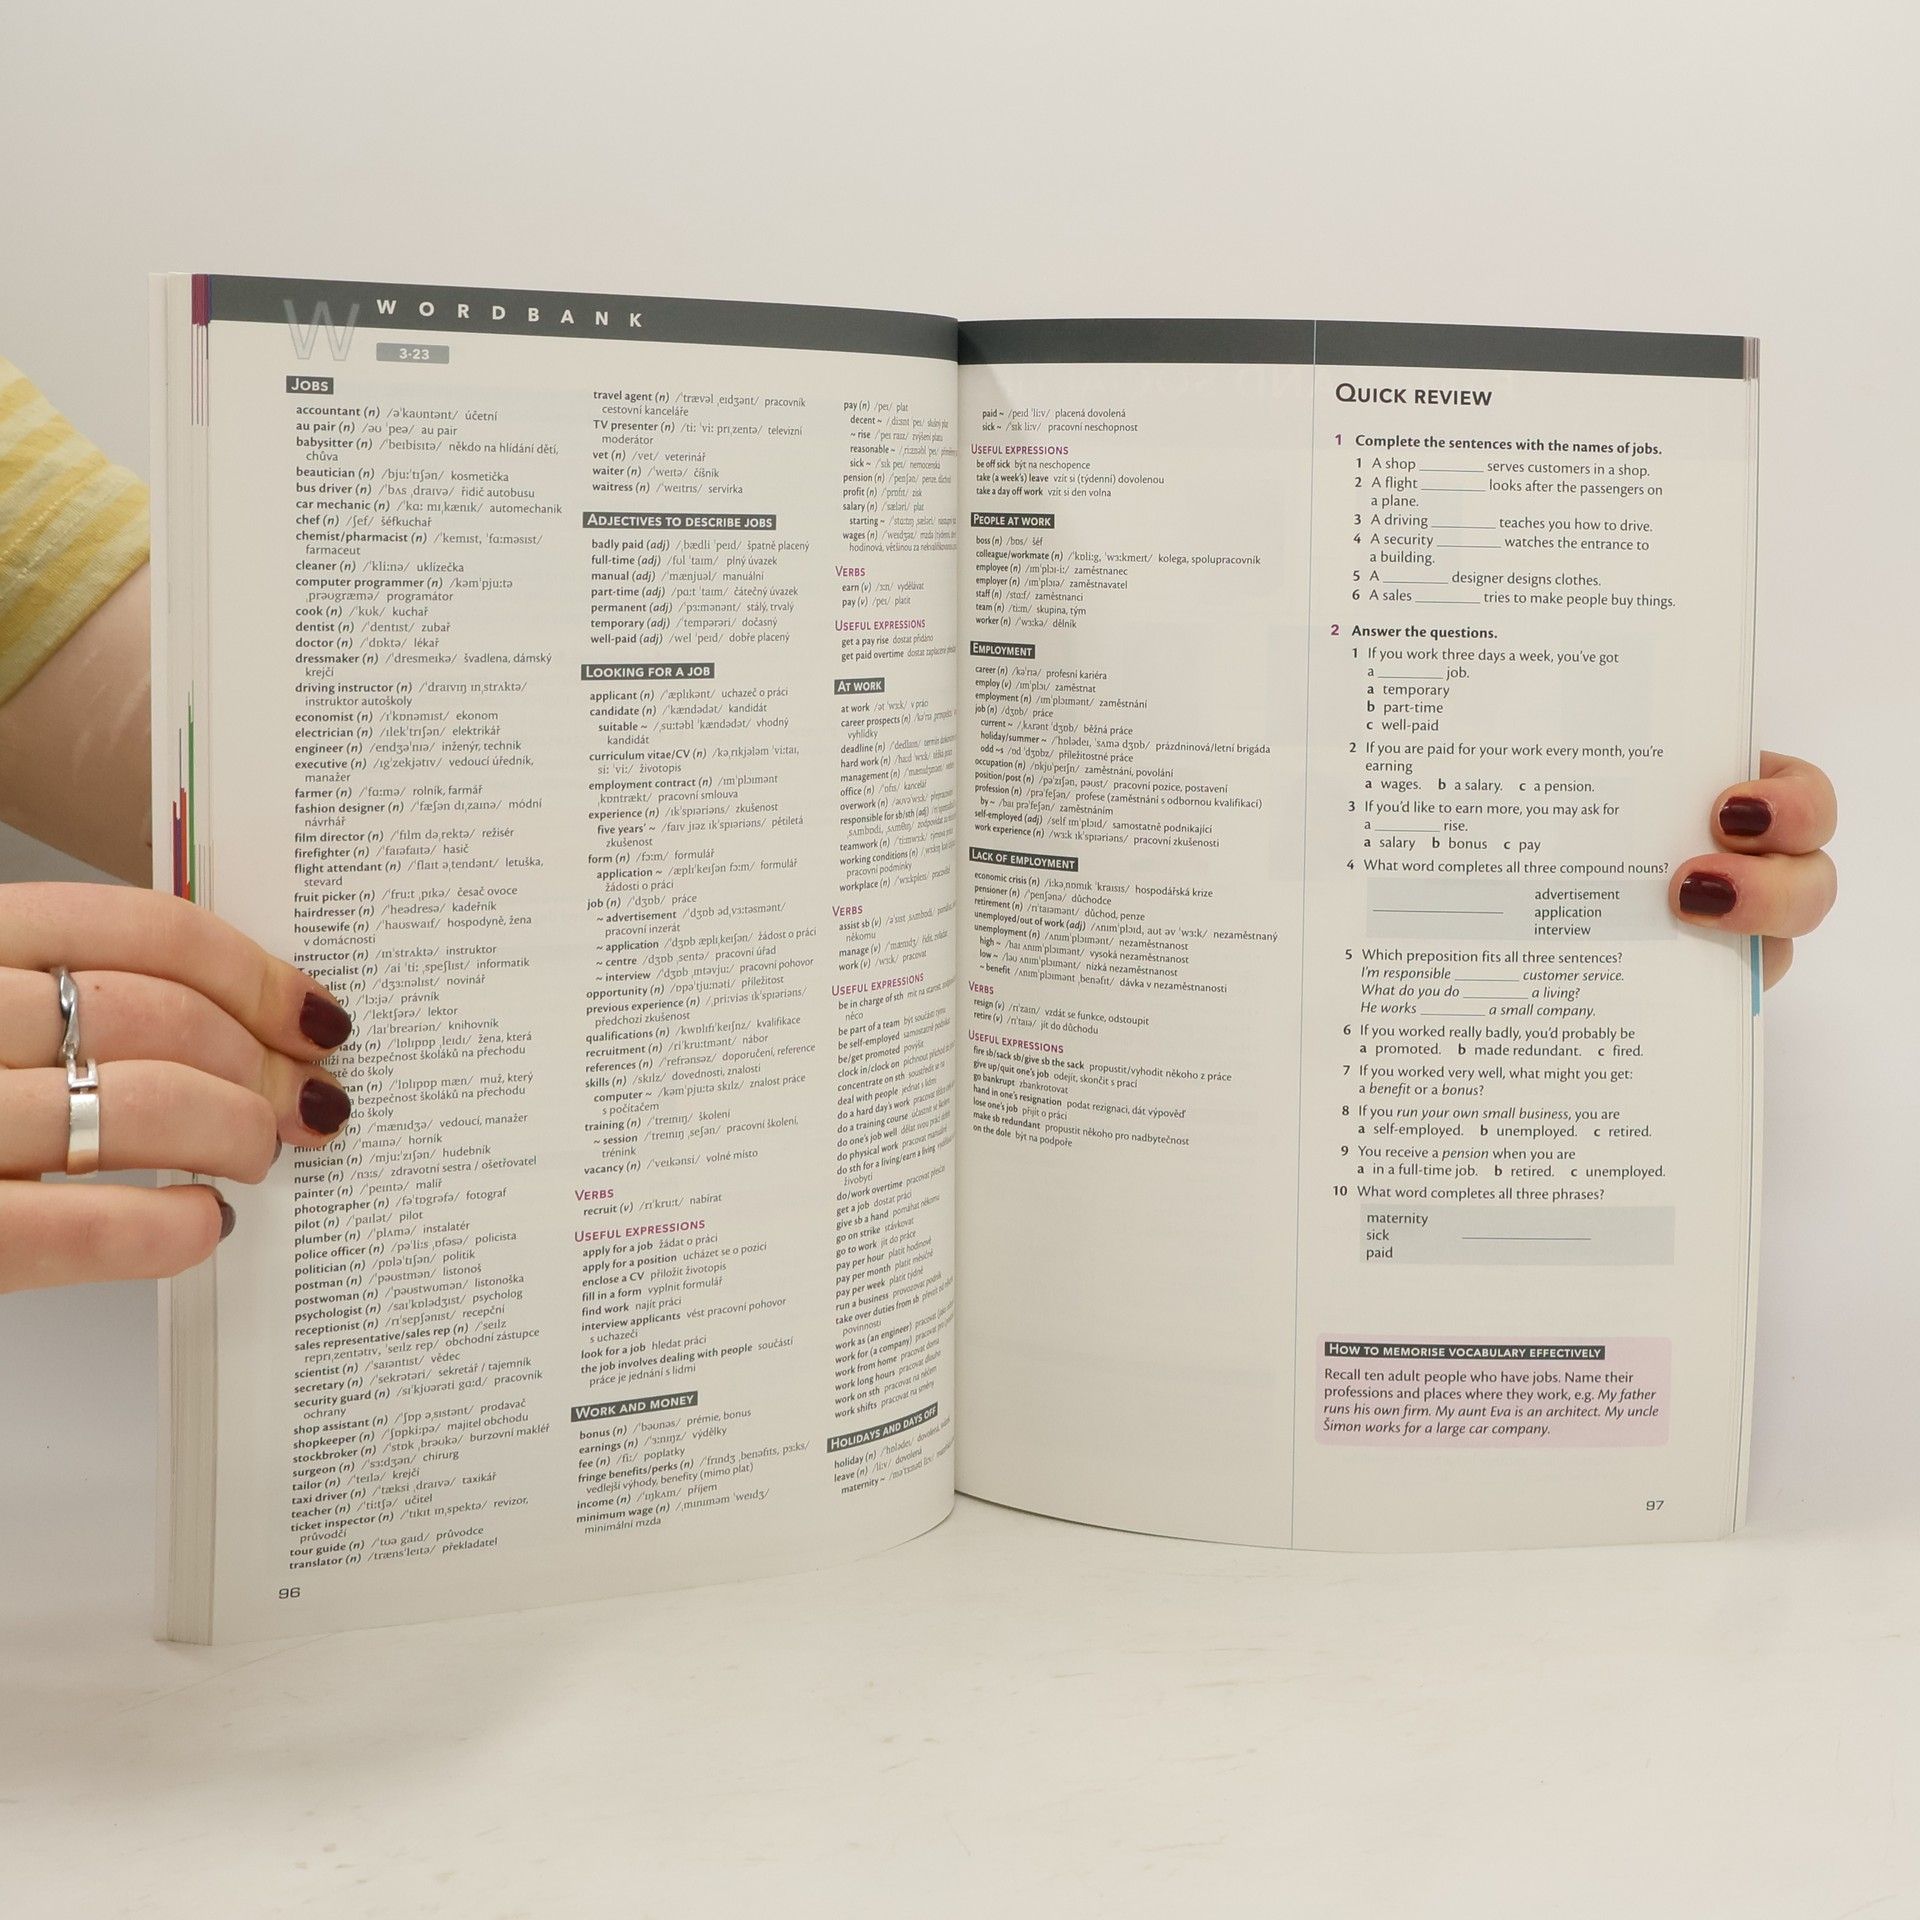 WORDBANK
3·23
JOBS
accountant (n) /ə'kaʊntənt/ účetní
au pair (n) /əʊ 'peə/ au pair
babysitter (n) /'beɪbɪsɪtə/ někdo na hlídání dětí,
chůva
beautician (n) /bjuː'tɪʃən/ kosmetička
bus driver (n) /'bʌs ˌdraɪvə/ řidič autobusu
car mechanic (n) /'kɑː mɪˌkænɪk/ automechanik
chef (n) /ʃef/ šéfkuchař
chemist/pharmacist (n) /'kemɪst, 'fɑːməsɪst/
farmaceut
cleaner (n) /'kliːnə/ uklízečka
computer programmer (n) /kəm'pjuːtə
ˌprəʊgræmə/ programátor
cook (n) /'kʊk/ kuchař
dentist (n) /'dentɪst/ zubař
doctor (n) /'dɒktə/ lékař
dressmaker (n) /'dresmeɪkə/ švadlena, dámský
krejčí
driving instructor (n) /'draɪvɪŋ ɪnˌstrʌktə/
instruktor autoškoly
economist (n) /ɪ'kɒnəmɪst/ ekonom
electrician (n) /ɪlek'trɪʃən/ elektrikář
engineer (n) /endʒə'nɪə/ inženýr, technik
executive (n) /ɪg'zekjətɪv/ vedoucí úředník,
manažer
farmer (n) /'fɑːmə/ rolník, farmář
fashion designer (n) /'fæʃən dɪˌzaɪnə/ módní
návrhář
film director (n) /'fɪlm dəˌrektə/ režisér
firefighter (n) /'faɪəfaɪtə/ hasič
flight attendant (n) /'flaɪt əˌtendənt/ letuška,
stevard
fruit picker (n) /'fruːt ˌpɪkə/ česač ovoce
hairdresser (n) /'headresə/ kadeřník
housewife (n) /'haʊswaɪf/ hospodyně, žena
v domácnosti
instructor (n) /ɪn'strʌktə/ instruktor
specialist (n) /aɪ 'tiː ˌspeʃlɪst/ informatik
/'dʒɜːnəlɪst/ novinář
/'lɔːjə/ právník
/'lektʃərə/ lektor
/laɪ'breərɪən/ knihovník
(n) /'lɒlɪpɒp ˌleɪdɪ/ žena, která
na bezpečnost školáků na přechodu
do školy
/'lɒlɪpɒp mæn/ muž, který
bezpečnost školáků na přechodu
do školy
/'mænɪdʒə/ vedoucí, manažer
miner (n) /'maɪnə/ horník
musician (n) /mjuː'zɪʃən/ hudebník
nurse (n) /nɜːs/ zdravotní sestra / ošetřovatel
painter (n) /'peɪntə/ malíř
photographer (n) /fə'tɒgrəfə/ fotograf
pilot (n) /'paɪlət/ pilot
plumber (n) /'plʌmə/ instalatér
police officer (n) /pə'liːs ˌɒfəsə/ policista
politician (n) /pɒlə'tɪʃən/ politik
postman (n) /'pəʊstmən/ listonoš
postwoman (n) /'pəʊstwʊmən/ listonoška
psychologist (n) /saɪ'kɒlədʒɪst/ psycholog
receptionist (n) /rɪ'sepʃənɪst/ recepční
sales representative/sales rep (n) /'seɪlz
reprɪˌzentətɪv, 'seɪlz rep/ obchodní zástupce
scientist (n) /'saɪəntɪst/ vědec
secretary (n) /'sekrətərɪ/ sekretář / tajemník
security guard (n) /sɪ'kjʊərətɪ gɑːd/ pracovník
ochrany
shop assistant (n) /'ʃɒp əˌsɪstənt/ prodavač
shopkeeper (n) /'ʃɒpkiːpə/ majitel obchodu
stockbroker (n) /'stɒkˌbrəʊkə/ burzovní makléř
surgeon (n) /'sɜːdʒən/ chirurg
tailor (n) /'teɪlə/ krejčí
taxi driver (n) /'tæksɪ ˌdraɪvə/ taxikář
teacher (n) /'tiːtʃə/ učitel
ticket inspector (n) /'tɪkɪt ɪnˌspektə/ revizor,
průvodčí
tour guide (n) /'tʊə gaɪd/ průvodce
translator (n) /træns'leɪtə/ překladatel
96
travel agent (n) /'trævəl ˌeɪdʒənt/ pracovník
cestovní kanceláře
TV presenter (n) /tiː 'viː prɪˌzentə/ televizní
moderátor
vet (n) /vet/ veterinář
waiter (n) /'weɪtə/ číšník
waitress (n) /'weɪtrɪs/ servírka
ADJECTIVES TO DESCRIBE JOBS
badly paid (adj) /ˌbædlɪ 'peɪd/ špatně placený
full-time (adj) /fʊl 'taɪm/ plný úvazek
manual (adj) /'mænjʊəl/ manuální
part-time (adj) /pɑːt 'taɪm/ částečný úvazek
permanent (adj) /'pɜːmənənt/ stálý, trvalý
temporary (adj) /'tempərərɪ/ dočasný
well-paid (adj) /wel 'peɪd/ dobře placený
LOOKING FOR A JOB
applicant (n) /'æplɪkənt/ uchazeč o práci
candidate (n) /'kændədət/ kandidát
suitable ~ /ˌsuːtəbl 'kændədət/ vhodný
kandidát
curriculum vitae/CV (n) /kəˌrɪkjələm 'viːtaɪ,
siː 'viː/ životopis
employment contract (n) /ɪm'plɔɪmənt
ˌkɒntrækt/ pracovní smlouva
experience (n) /ɪk'spɪərɪəns/ zkušenost
five years' ~ /faɪv jɪəz ɪk'spɪərɪəns/ pětiletá
zkušenost
form (n) /fɔːm/ formulář
application ~ /æplɪ'keɪʃən fɔːm/ formulář
žádosti o práci
job (n) /'dʒɒb/ práce
~ advertisement /'dʒɒb ədˌvɜːtəsmənt/
pracovní inzerát
~ application /'dʒɒb æplɪˌkeɪʃən/ žádost o práci
~ centre /'dʒɒb ˌsentə/ pracovní úřad
~ interview /'dʒɒb ˌɪntəvjuː/ pracovní pohovor
opportunity (n) /ɒpə'tjuːnətɪ/ příležitost
previous experience (n) /ˌpriːvɪəs ɪk'spɪərɪəns/
předchozí zkušenost
qualifications (n) /kwɒlɪfɪ'keɪʃnz/ kvalifikace
recruitment (n) /rɪ'kruːtmənt/ nábor
references (n) /'refrənsəz/ doporučení, reference
skills (n) /skɪlz/ dovednosti, znalosti
computer ~ /kəm'pjuːtə skɪlz/ znalost práce
s počítačem
training (n) /'treɪnɪŋ/ školení
~ session /'treɪnɪŋ ˌseʃən/ pracovní školení,
trénink
vacancy (n) /'veɪkənsɪ/ volné místo
VERBS
recruit (v) /rɪ'kruːt/ nabírat
USEFUL EXPRESSIONS
apply for a job žádat o práci
apply for a position ucházet se o pozici
enclose a CV přiložit životopis
fill in a form vyplnit formulář
find work najít práci
interview applicants vést pracovní pohovor
s uchazeči
look for a job hledat práci
the job involves dealing with people součástí
práce je jednání s lidmi
WORK AND MONEY
bonus (n) /'bəʊnəs/ prémie, bonus
earnings (n) /'ɜːnɪŋz/ výdělky
fee (n) /fiː/ poplatky
fringe benefits/perks (n) /'frɪndʒ ˌbenəfɪts, pɜːks/
vedlejší výhody, benefity (mimo plat)
income (n) /'ɪŋkʌm/ příjem
minimum wage (n) /ˌmɪnɪməm 'weɪdʒ/
minimální mzda
pay (n) /peɪ/ plat
decent ~ /ˌdiːsnt 'peɪ/ slušný plat
~ rise /'peɪ raɪz/ zvýšení platu
reasonable ~ /ˌriːznəbl 'peɪ/
sick ~ /'sɪk peɪ/ nemocenská
pension (n) /'penʃən/ penze, důchod
profit (n) /'prɒfɪt/ zisk
salary (n) /'sælərɪ/ plat
starting ~ /'stɑːtɪŋ ˌsælərɪ/
wages (n) /'weɪdʒəz/
hodinová, většinou za
VERBS
earn (v) /ɜːn/ vydělávat
pay (v) /peɪ/ platit
USEFUL EXPRESSIONS
get a pay rise dostat přidáno
get paid overtime dostat
AT WORK
at work /ət 'wɜːk/ v práci
career prospects (n)
vyhlídky
deadline (n) /'dedlaɪn/
hard work (n) /hɑːd 'wɜːk/
management (n)
office (n) /'ɒfɪs/ kancelář
overwork (n)
responsible for sb/sth (adj)
teamwork (n) /'tiːmwɜːk/
working conditions (n)
pracovní podmínky
workplace (n) /'wɜːkpleɪs/
VERBS
assist sb (v)
někomu
manage (v) /'mænɪdʒ/
work (v) /wɜːk/ pracovat
USEFUL EXPRESSIONS
be in charge of sth
něco
be part of a team
be self-employed
be/get promoted
clock in/clock on
concentrate on sth
deal with people
do a hard day's work
do a training course
do one's job well
do physical work
do sth for a living/earn a living
živobytí
do/work overtime
get a job dostat práci
give sb a hand pomáhat někomu
go on strike stávkovat
go to work jít do práce
pay per hour platit hodinově
pay per month platit měsíčně
pay per week platit týdně
run a business
take over duties from sb
povinnosti
work as (an engineer)
work for (a company)
work from home
work long hours
work on sth
work shifts pracovat na směny
HOLIDAYS AND DAYS OFF
holiday (n) /'hɒlədeɪ/
leave (n) /liːv/ dovolená
maternity ~
paid ~ /peɪd 'liːv/ placená dovolená
sick ~ /'sɪk liːv/ pracovní neschopnost
USEFUL EXPRESSIONS
be off sick být na neschopence
take (a week's) leave vzít si (týdenní) dovolenou
take a day off work vzít si den volna
PEOPLE AT WORK
boss (n) /bɒs/ šéf
colleague/workmate (n) /'kɒliːg, 'wɜːkmeɪt/ kolega, spolupracovník
employee (n) /ɪm'plɔɪ-iː/ zaměstnanec
employer (n) /ɪm'plɔɪə/ zaměstnavatel
staff (n) /stɑːf/ zaměstnanci
team (n) /tiːm/ skupina, tým
worker (n) /'wɜːkə/ dělník
EMPLOYMENT
career (n) /kə'rɪə/ profesní kariéra
employ (v) /ɪm'plɔɪ/ zaměstnat
employment (n) /ɪm'plɔɪmənt/ zaměstnání
job (n) /dʒɒb/ práce
current ~ /ˌkʌrənt 'dʒɒb/ běžná práce
holiday/summer ~ /'hɒlədeɪ, 'sʌmə dʒɒb/ prázdninová/letní brigáda
odd ~s /ɒd 'dʒɒbz/ příležitostné práce
occupation (n) /ɒkjʊ'peɪʃn/ zaměstnání, povolání
position/post (n) /pə'zɪʃən, pəʊst/ pracovní pozice, postavení
profession (n) /prə'feʃn/ profese (zaměstnání s odbornou kvalifikací)
by ~ /baɪ prə'feʃn/ zaměstnáním
self-employed (adj) /self ɪm'plɔɪd/ samostatně podnikající
work experience (n) /wɜːk ɪk'spɪərɪəns/ pracovní zkušenosti
LACK OF EMPLOYMENT
economic crisis (n) /iːkəˌnɒmɪk 'kraɪsɪs/ hospodářská krize
pensioner (n) /'penʃənə/ důchodce
retirement (n) /rɪ'taɪəmənt/ důchod, penze
unemployed/out of work (adj) /ʌnɪm'plɔɪd, aʊt əv 'wɜːk/ nezaměstnaný
unemployment (n) /ʌnɪm'plɔɪmənt/ nezaměstnanost
high ~ /haɪ ʌnɪm'plɔɪmənt/ vysoká nezaměstnanost
low ~ /ləʊ ʌnɪm'plɔɪmənt/ nízká nezaměstnanost
~ benefit /ʌnɪm'plɔɪmənt ˌbenəfɪt/ dávka v nezaměstnanosti
VERBS
resign (v) /rɪ'zaɪn/ vzdát se funkce, odstoupit
retire (v) /rɪ'taɪə/ jít do důchodu
USEFUL EXPRESSIONS
fire sb/sack sb/give sb the sack propustit/vyhodit někoho z práce
give up/quit one's job odejít, skončit s prací
go bankrupt zbankrotovat
hand in one's resignation podat rezignaci, dát výpověď
lose one's job přijít o práci
make sb redundant propustit někoho pro nadbytečnost
on the dole být na podpoře
QUICK REVIEW
1 Complete the sentences with the names of jobs.
1 A shop ________ serves customers in a shop.
2 A flight ________ looks after the passengers on
a plane.
3 A driving ________ teaches you how to drive.
4 A security ________ watches the entrance to
a building.
5 A ________ designer designs clothes.
6 A sales ________ tries to make people buy things.
2 Answer the questions.
1 If you work three days a week, you've got
a ________ job.
a temporary
b part-time
c well-paid
2 If you are paid for your work every month, you're
earning
a wages. b a salary. c a pension.
3 If you'd like to earn more, you may ask for
a ________ rise.
a salary b bonus c pay
4 What word completes all three compound nouns?
advertisement
________ application
interview
5 Which preposition fits all three sentences?
I'm responsible ________ customer service.
What do you do ________ a living?
He works ________ a small company.
6 If you worked really badly, you'd probably be
a promoted. b made redundant. c fired.
7 If you worked very well, what might you get:
a benefit or a bonus?
8 If you run your own small business, you are
a self-employed. b unemployed. c retired.
9 You receive a pension when you are
a in a full-time job. b retired. c unemployed.
10 What word completes all three phrases?
maternity
sick ________
paid
HOW TO MEMORISE VOCABULARY EFFECTIVELY
Recall ten adult people who have jobs. Name their
professions and places where they work, e.g. My father
runs his own firm. My aunt Eva is an architect. My uncle
Šimon works for a large car company.
97